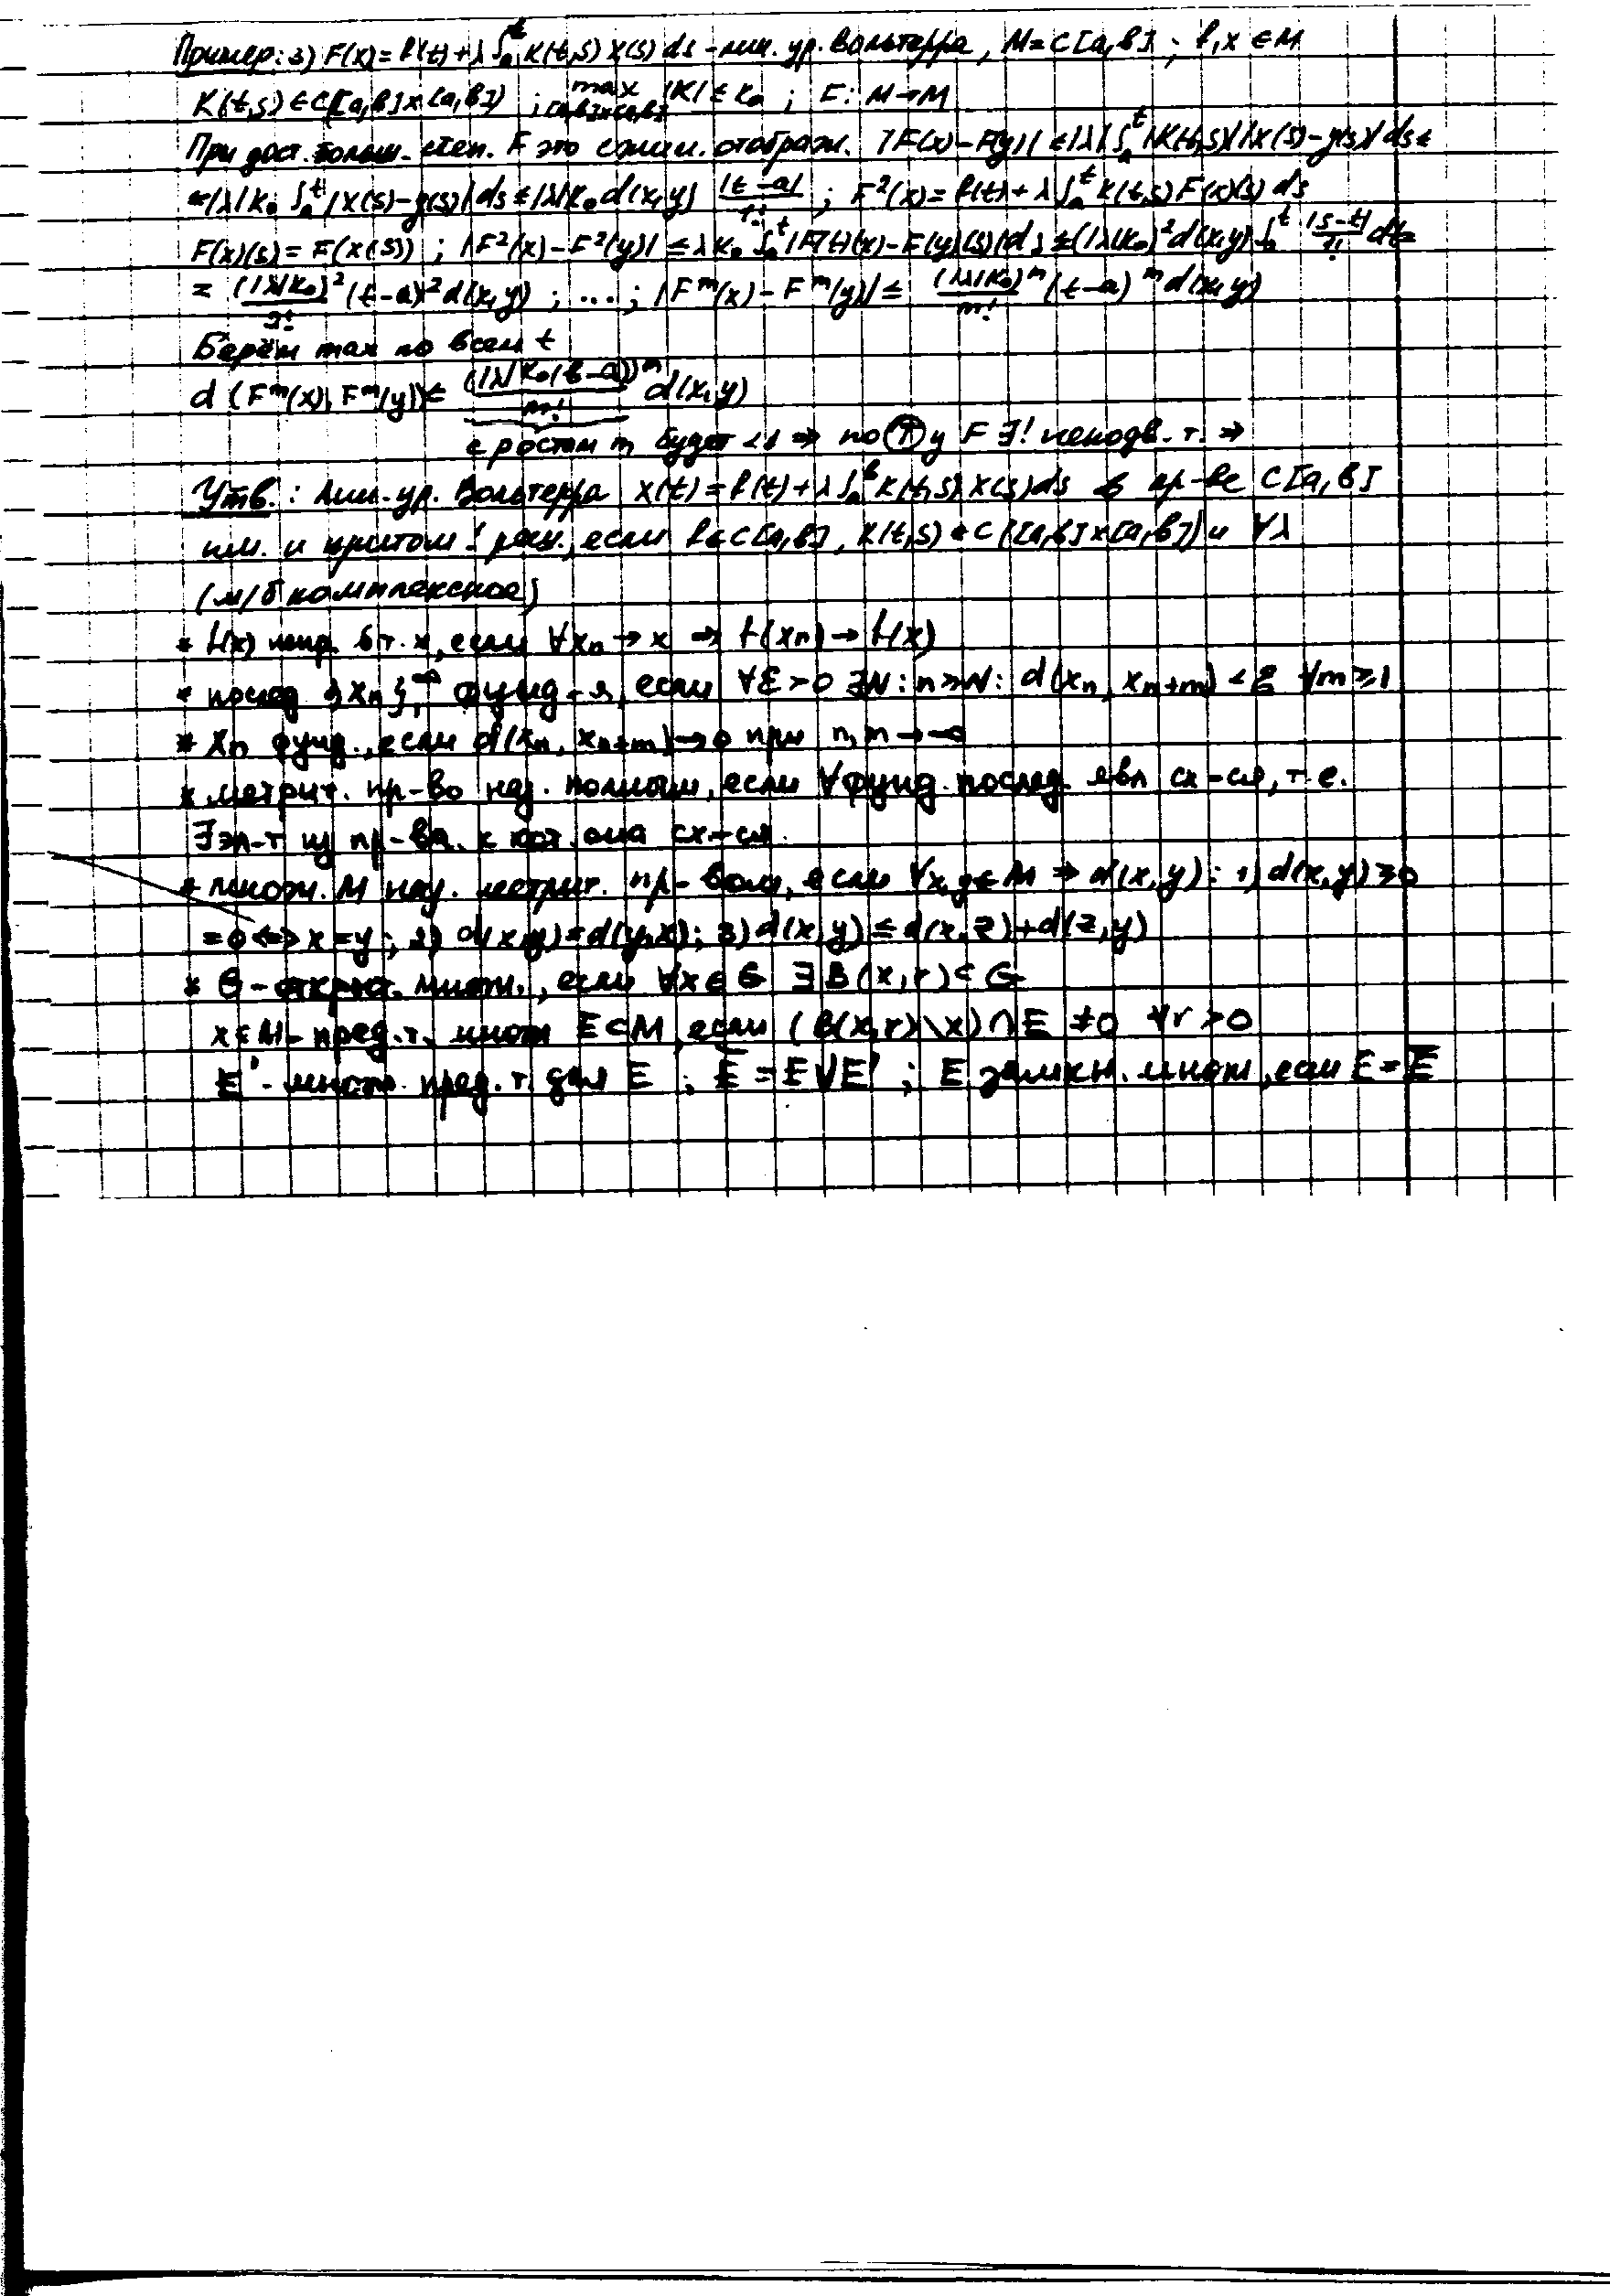 Пример: 3) F(x) = f(t) + λ ∫ₐᵗ K(t,s) x(s) ds - лин. ур. Вольтерра, M = C[a,b] ; f, x ∈ M
K(t,s) ∈ C([a,b]x[a,b]) ; max_{[a,b]x[a,b]} |K| ≤ K₀ ; F: M→M
При дост. больш. степ. F это сжим. отображ. |F(x) - F(y)| ≤ |λ| ∫ₐᵗ |K(t,s)||x(s) - y(s)| ds ≤
≤ |λ| K₀ ∫ₐᵗ |x(s) - y(s)| ds ≤ |λ| K₀ d(x,y) |t-a|/1! ; F²(x) = f(t) + λ ∫ₐᵗ K(t,s) F(x)(s) ds
F(x)(s) = F(x(s)) ; |F²(x) - F²(y)| ≤ λ K₀ ∫ₐᵗ |F(t)(x) - F(y)(s)| ds ≤ (|λ|K₀)² d(x,y) ∫ₐᵗ |s-t|/1! dt =
= (|λ|K₀)²/2! (t-a)² d(x,y) ; ... ; |Fᵐ(x) - Fᵐ(y)| ≤ (|λ|K₀)ᵐ/m! (t-a)ᵐ d(x,y)
Берём max по всем t
d (Fᵐ(x), Fᵐ(y)) ≤ (|λ|K₀(b-a))ᵐ/m! d(x,y)
с ростом m будет <1 ⇒ по Ⓣ у F ∃! неподв. т. ⇒
Утв.: Лин. ур. Вольтерра x(t) = f(t) + λ ∫ₐᵇ K(t,s) x(s) ds в пр-ве C[a,b]
им. и притом ! реш., если f ∈ C[a,b], K(t,s) ∈ C([a,b]x[a,b]) и ∀λ
(м/б комплексное)
* f(x) непр. в т. x, если ∀xₙ → x ⇒ f(xₙ) → f(x)
* послед {xₙ}₁^∞ фунд-я, если ∀ε > 0 ∃N : n ≥ N : d(xₙ, xₙ₊ₘ) < ε ∀m ≥ 1
* xₙ фунд., если d(xₙ, xₙ₊ₘ) → 0 при n, m → ∞
* метрич. пр-во наз. полным, если ∀ фунд. послед. явл сх-ся, т.е.
∃ эл-т из пр-ва. к кот. она сх-ся.
* множ. M наз. метрич. пр-вом, если ∀x,y ∈ M ⇒ d(x,y) : 1) d(x,y) ≥ 0
= 0 ⇔ x = y ; 2) d(x,y) = d(y,x) ; 3) d(x,y) ≤ d(x,z) + d(z,y)
* G - открыт. множ., если ∀x ∈ G ∃ B(x,r) ⊂ G
x ∈ M - пред. т. множ E ⊂ M, если (B(x,r) \ x) ∩ E ≠ 0 ∀r > 0
E' - множ. пред. т. для E ; E̅ = E ∪ E' ; E замкн. множ, если E = E̅